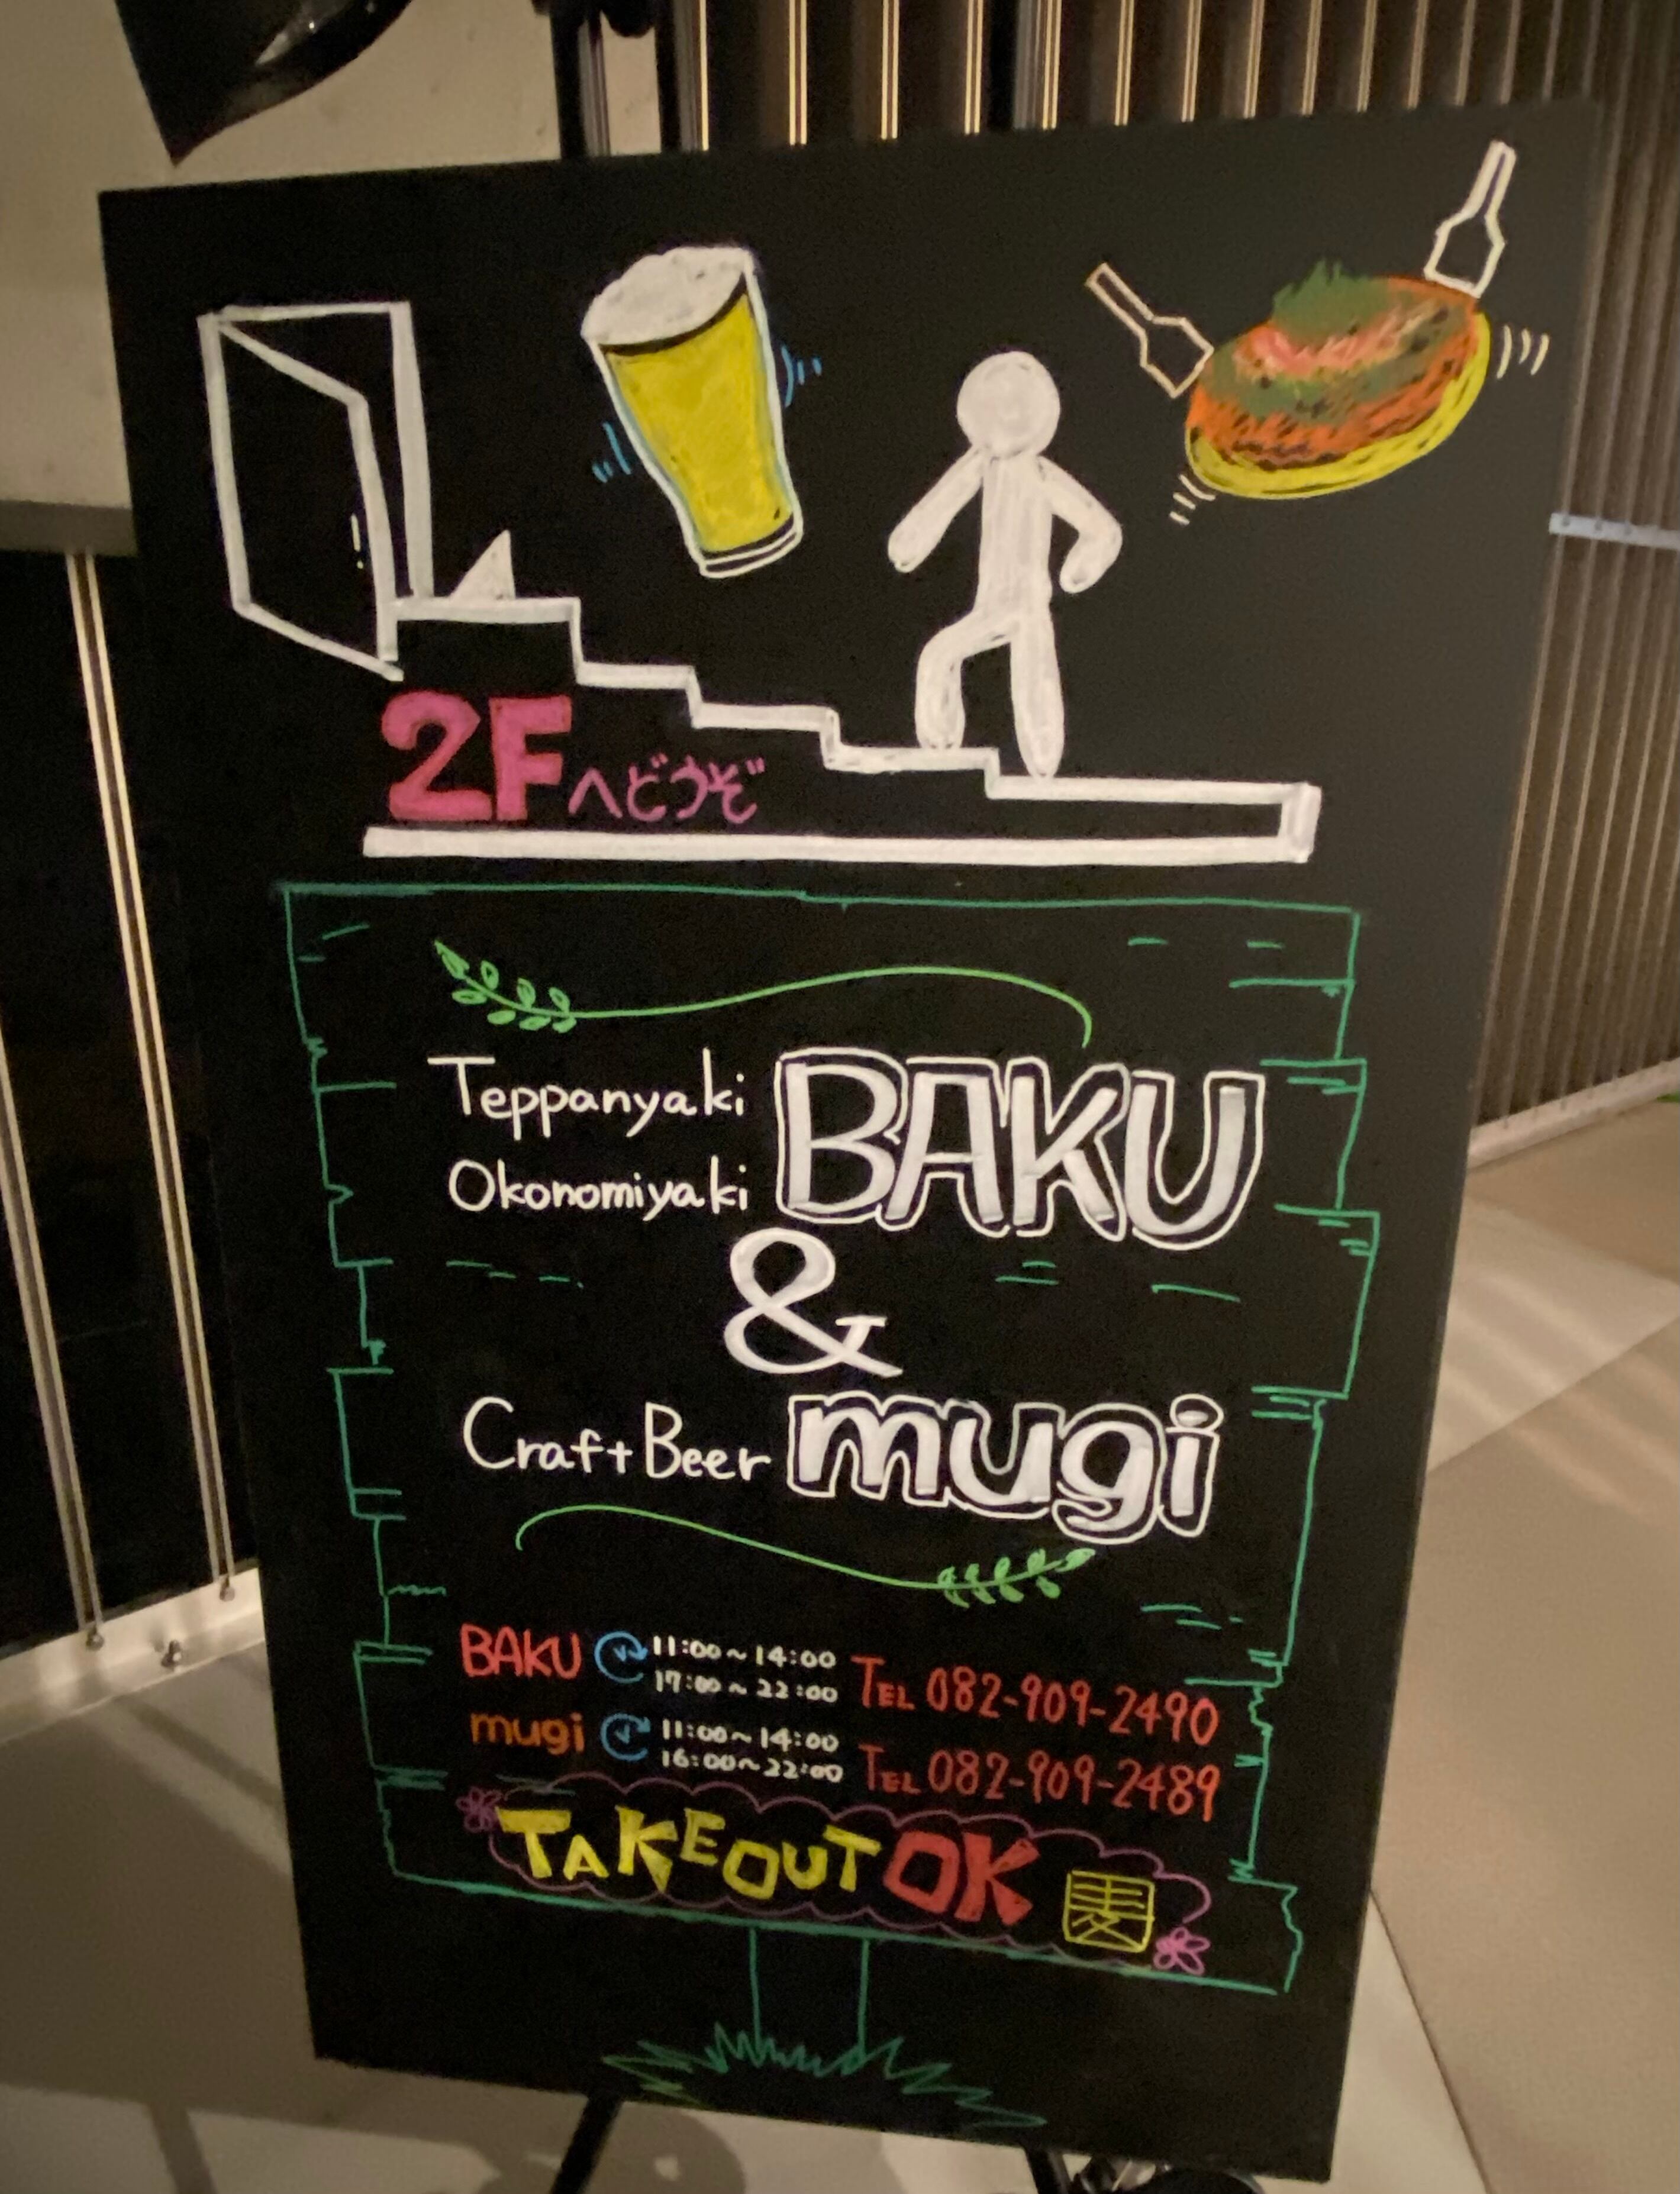 2Fへどうぞ
Teppanyaki
Okonomiyaki
BAKU
&
Craft Beer mugi
BAKU 11:00~14:00
17:00~22:00
TEL 082-909-2490
mugi 11:00~14:00
16:00~22:00
TEL 082-909-2489
TAKEOUT OK 麦